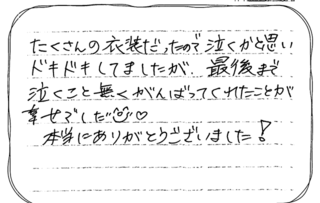 たくさんの衣装だったので泣くかと思い
ドキドキしてましたが、最後まで
泣くこと無くがんばってくれたことが
幸せでした😊♡
本当にありがとうございました!